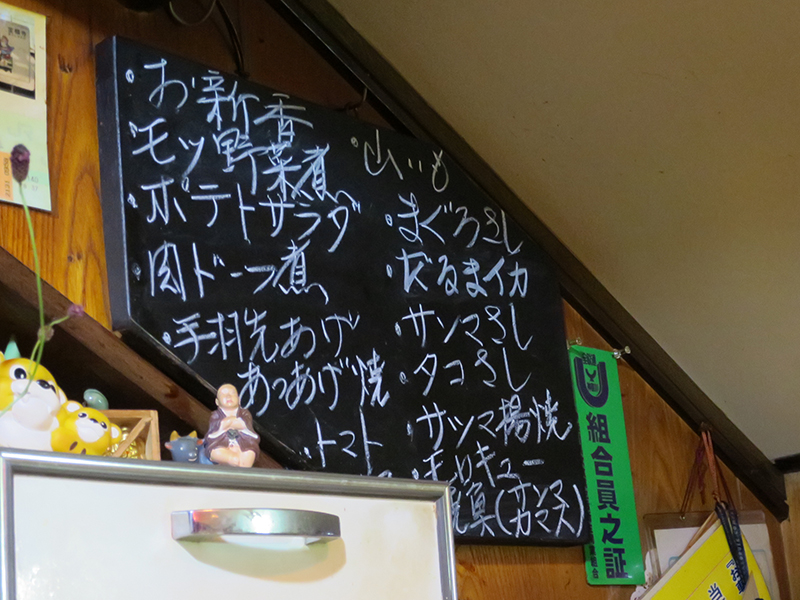 ・お新香
・モツ野菜煮
・ポテトサラダ
・肉ドーフ煮
・手羽先あげ
・あつあげ焼
・トマト
・山いも
・まぐろさし
・だるまイカ
・サンマさし
・タコさし
・サツマ揚焼
・モロキュー
焼魚(サンマ カマス)
組合員之証